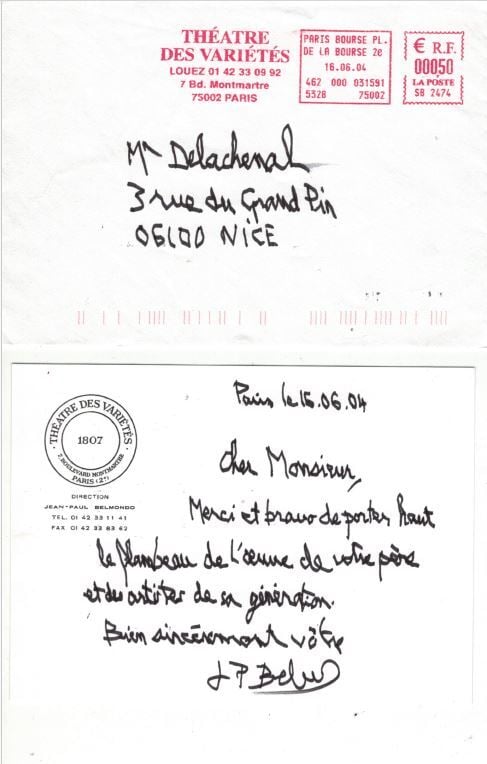 THÉATRE
DES VARIÉTÉS
LOUEZ 01 42 33 09 92
7 Bd. Montmartre
75002 PARIS
PARIS BOURSE PL.
DE LA BOURSE 2e
16.06.04
462 000 031591
5328 75002
€ R.F.
00050
LA POSTE
SB 2474
Mr Delachenal
3 rue du Grand Pin
06100 NICE
THÉATRE DES VARIÉTÉS
1807
7, BOULEVARD MONTMARTRE
PARIS (2e)
DIRECTION
JEAN-PAUL BELMONDO
TEL. 01 42 33 11 41
FAX 01 42 33 83 62
Paris le 15.06.04
Cher Monsieur,
Merci et bravo de porter haut
le flambeau de l'œuvre de votre père
et des artistes de sa génération.
Bien sincèrement vôtre
J P Belm